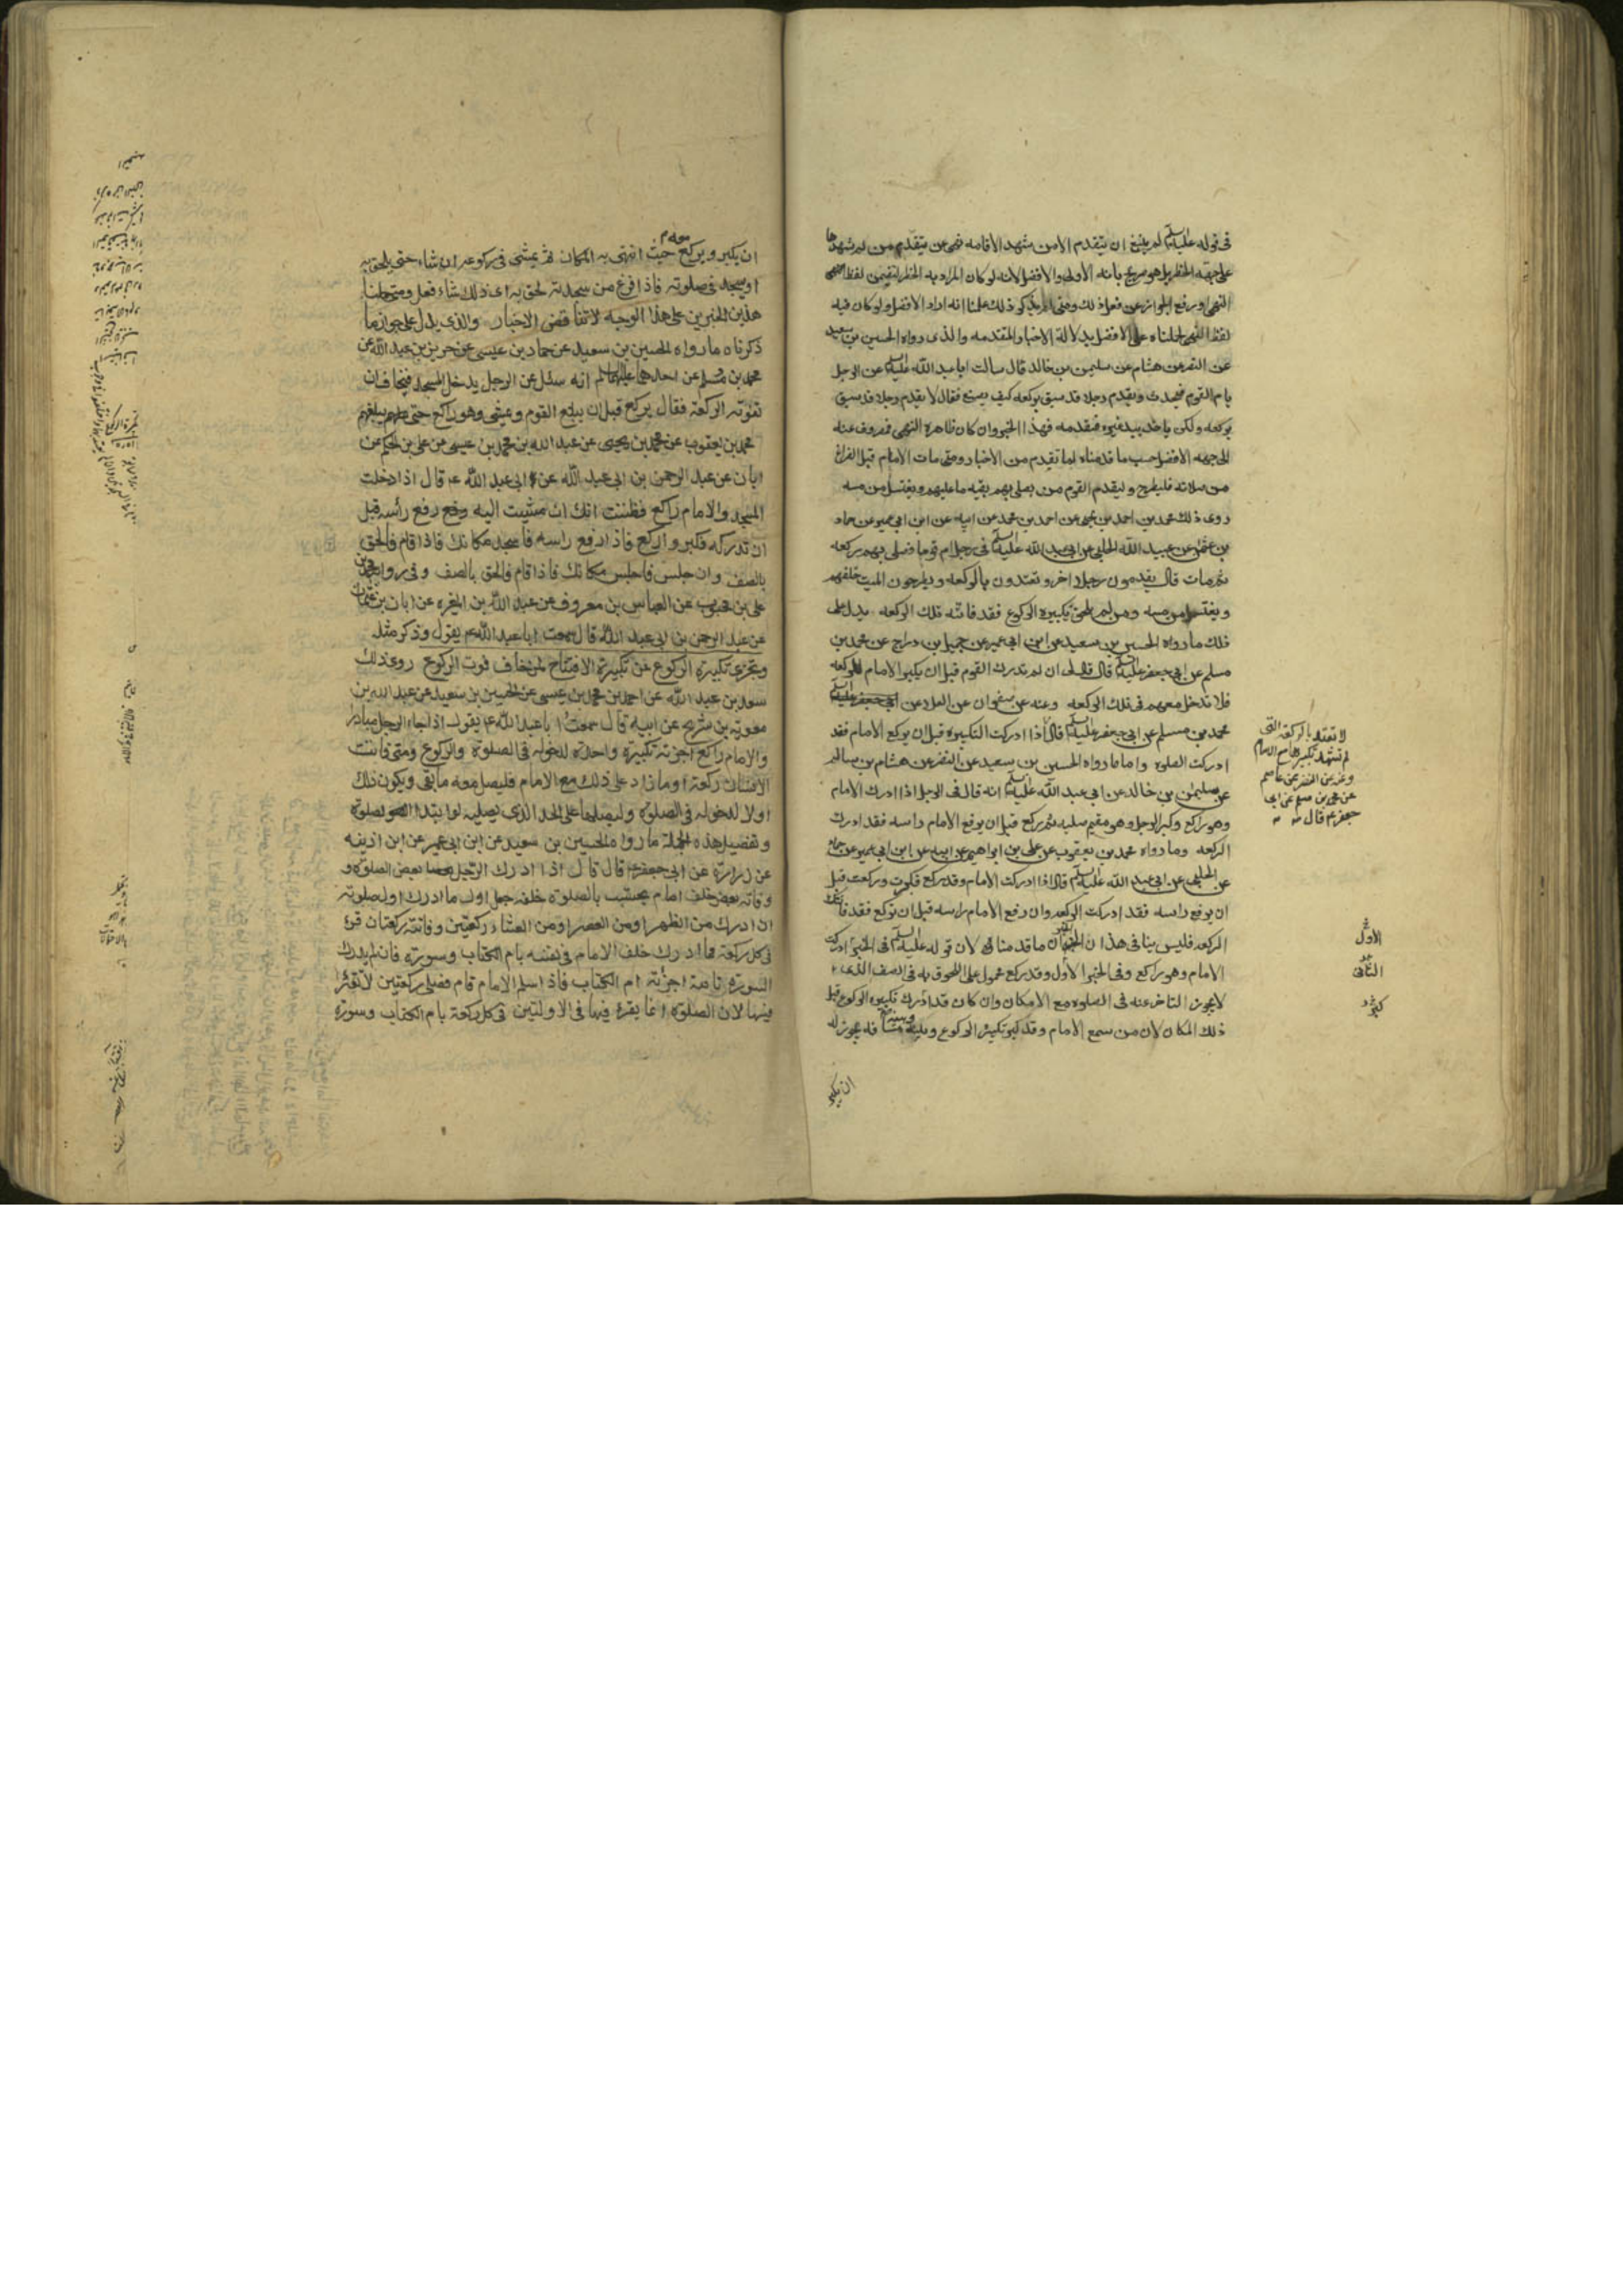 فى قوله عليه السلم لم ينبغ ان يتقدم الا من شهد الاقامه نهى عن يتقدم من لم يشهدها
على جهة الحظر بل هو صريح بانه الاولى والافضل لانه لو كان المراد به الحظر لتضمن لفظا
النهى او رفع الجواز عن فعل ذلك ومتى لم يذكر ذلك علمنا انه اراد الافضل ولو كان فيه
لفظ النهى لحملناه على الافضل بدلالة الاخبار المتقدمه والذى رواه الحسين بن سعيد
عن النضر عن هشام عن سليمن بن خالد قال سالت ابا عبد الله عليه السلم عن الرجل
يام القوم فيحدث ويقدم رجلا قد سبق بركعه كيف يصنع فقال لا يقدم رجلا قد سبق
بركعه ولكن ياخذ بيد غيره فيقدمه فهذا الخبر وان كان ظاهره النهى فمصروف عنه
الى جهه الافضل حسب ما قدمناه لما تقدم من الاخبار ومتى مات الامام قبل الفراغ
من صلاته فليطرح وليقدم القوم من يصلى بهم بقيه ما عليهم ويغتسل من مسه
روى ذلك محمد بن احمد بن يحيى عن احمد بن محمد عن ابيه عن ابن ابى عمير عن حماد
بن عثمن عن عبيد الله الحلبى عن ابى عبد الله عليه السلم فى رجل ام قوما فصلى بهم ركعه
ثم مات قال يقدمون رجلا اخر وتعتدون بالركعه ويطرحون الميت خلفهم
ويغتسل من مسه ومن لم يلحق تكبيره الركوع فقد فاتته تلك الركعه يدل على
ذلك ما رواه الحسين بن سعيد عن ابن ابى عمير عن جميل بن دراج عن محمد بن
مسلم عن ابى جعفر عليه السلم قال قال لى ان لم تدرك القوم قبل ان يكبر الامام للركعه
فلا تدخل معهم فى تلك الركعه وعنه عن صفوان عن العلا عن
محمد بن مسلم عن ابى جعفر عليه السلم قال اذا ادركت التكبيره قبل ان يركع الامام فقد
ادركت الصلوه واما ما رواه الحسين بن سعيد عن النضر عن هشام بن سالم
عن سليمن بن خالد عن ابى عبد الله عليه السلم انه قال فى الرجل اذا ادرك الامام
وهو راكع وكبر الرجل وهو مقيم صلبه ثم ركع قبل ان يرفع الامام راسه فقد ادرك
الركعه وما رواه محمد بن يعقوب عن على بن ابراهيم عن ابيه عن ابن ابى عمير عن حماد
عن الحلبى عن ابى عبد الله عليه السلم قال اذا ادركت الامام وقد ركع فكبرت وركعت قبل
ان يرفع راسه فقد ادركت الركعه وان رفع الامام راسه قبل ان تركع فقد فاتتك
الركعه فليس ينافى هذان الخبران ما قدمناه لان قوله عليه السلم فى الخبر ادرك
الامام وهو راكع وفى الخبر الاول وقد ركع محمول على اللحوق به فى الصف الذى
لا يجوز التاخر عنه فى الصلوه مع الامكان وان كان قد ادرك تكبيره الركوع قبل
ذلك المكان لان من سمع الامام وقد كبر تكبيرة الركوع وبينه مسافه يجوز له
ان يكبر
لا تعتد بالركعة التى
لم تشهد تكبيرها مع الامام
وعنه عن النضر عن عاصم
عن محمد بن مسلم عن ابى
جعفر ع قال
الاول
الثانى
ان يكبر ويركع حيث انتهى به المكان ثم يمشى فى ركوعه ان شاء حتى يلحق به
او يسجد فى صلوته فاذا فرغ من سجدته لحق به اى ذلك شاء فعل ومتى حملنا
هذين الخبرين على هذا الوجه لا تتناقض الاخبار والذى يدل على جواز ما
ذكرناه ما رواه الحسين بن سعيد عن حماد بن عيسى عن حريز بن عبد الله عن
محمد بن مسلم عن احدهما عليهما السلم انه سئل عن الرجل يدخل المسجد فيخاف ان
تفوته الركعة فقال يركع قبل ان يبلغ القوم ويمشى وهو راكع حتى يبلغهم
محمد بن يعقوب عن محمد بن يحيى عن عبد الله بن محمد بن عيسى عن على بن الحكم عن
ابان عن عبد الرحمن بن ابى عبد الله عن ابى عبد الله ع قال اذا دخلت
المسجد والامام راكع فظننت انك ان مشيت اليه رفع راسه قبل
ان تدركه فكبر واركع فاذا رفع راسه فاسجد مكانك فاذا قام فالحق
بالصف وان جلس فاجلس مكانك فاذا قام فالحق بالصف وفى رواية محمد بن
على بن محبوب عن العباس بن معروف عن عبد الله بن المغره عن ابان بن عثمان
عن عبد الرحمن بن ابى عبد الله قال سمعت ابا عبد الله ع يقول وذكر مثله
وتجزى تكبيرة الركوع عن تكبيرة الافتتاح لمن خاف فوت الركوع روى ذلك
سعد بن عبد الله عن احمد بن محمد بن عيسى عن الحسين بن سعيد عن عبد الله بن
معوية بن شريح عن ابيه قال سمعت ابا عبد الله ع يقول اذا جاء الرجل مبادرا
والامام راكع اجزته تكبيرة واحدة لدخوله فى الصلوة والركوع ومتى فاتت
الانسان ركعة او ما زاد على ذلك مع الامام فليصل معه ما بقى ويكون ذلك
اولا لدخوله فى الصلوة وليصلها على الحد الذى يصليه لو ابتدا الصلوة
وتفصيل هذه الجملة ما رواه الحسين بن سعيد عن ابن ابى عمير عن ابن اذينه
عن زرارة عن ابى جعفر ع قال قال اذا ادرك الرجل بعض الصلوة و
وفاته بعض خلف امام يحتسب بالصلوة خلفه جعل اول ما ادرك اول صلوته
ان ادرك من الظهر او من العصر او من العشاء ركعتين وفاتته ركعتان قرء
فى كل ركعة مما ادرك خلف الامام فى نفسه بام الكتاب وسورة فان لم يدرك
السورة تامة اجزته ام الكتاب فاذا سلم الامام قام فصلى ركعتين لا تقرء
فيها لان الصلوة انما يقرء فيها فى الاولتين فى كل ركعة بام الكتاب وسورة